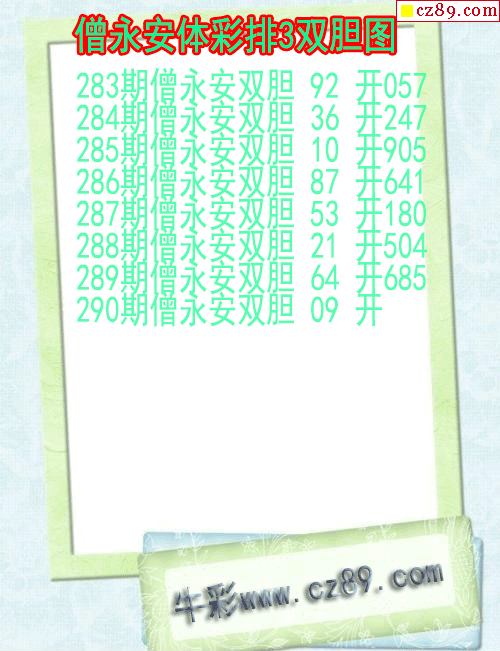 cz89.com
僧永安体彩排3双胆图
283期僧永安双胆 92 开057
284期僧永安双胆 36 开247
285期僧永安双胆 10 开905
286期僧永安双胆 87 开641
287期僧永安双胆 53 开180
288期僧永安双胆 21 开504
289期僧永安双胆 64 开685
290期僧永安双胆 09 开
牛彩www.cz89.com